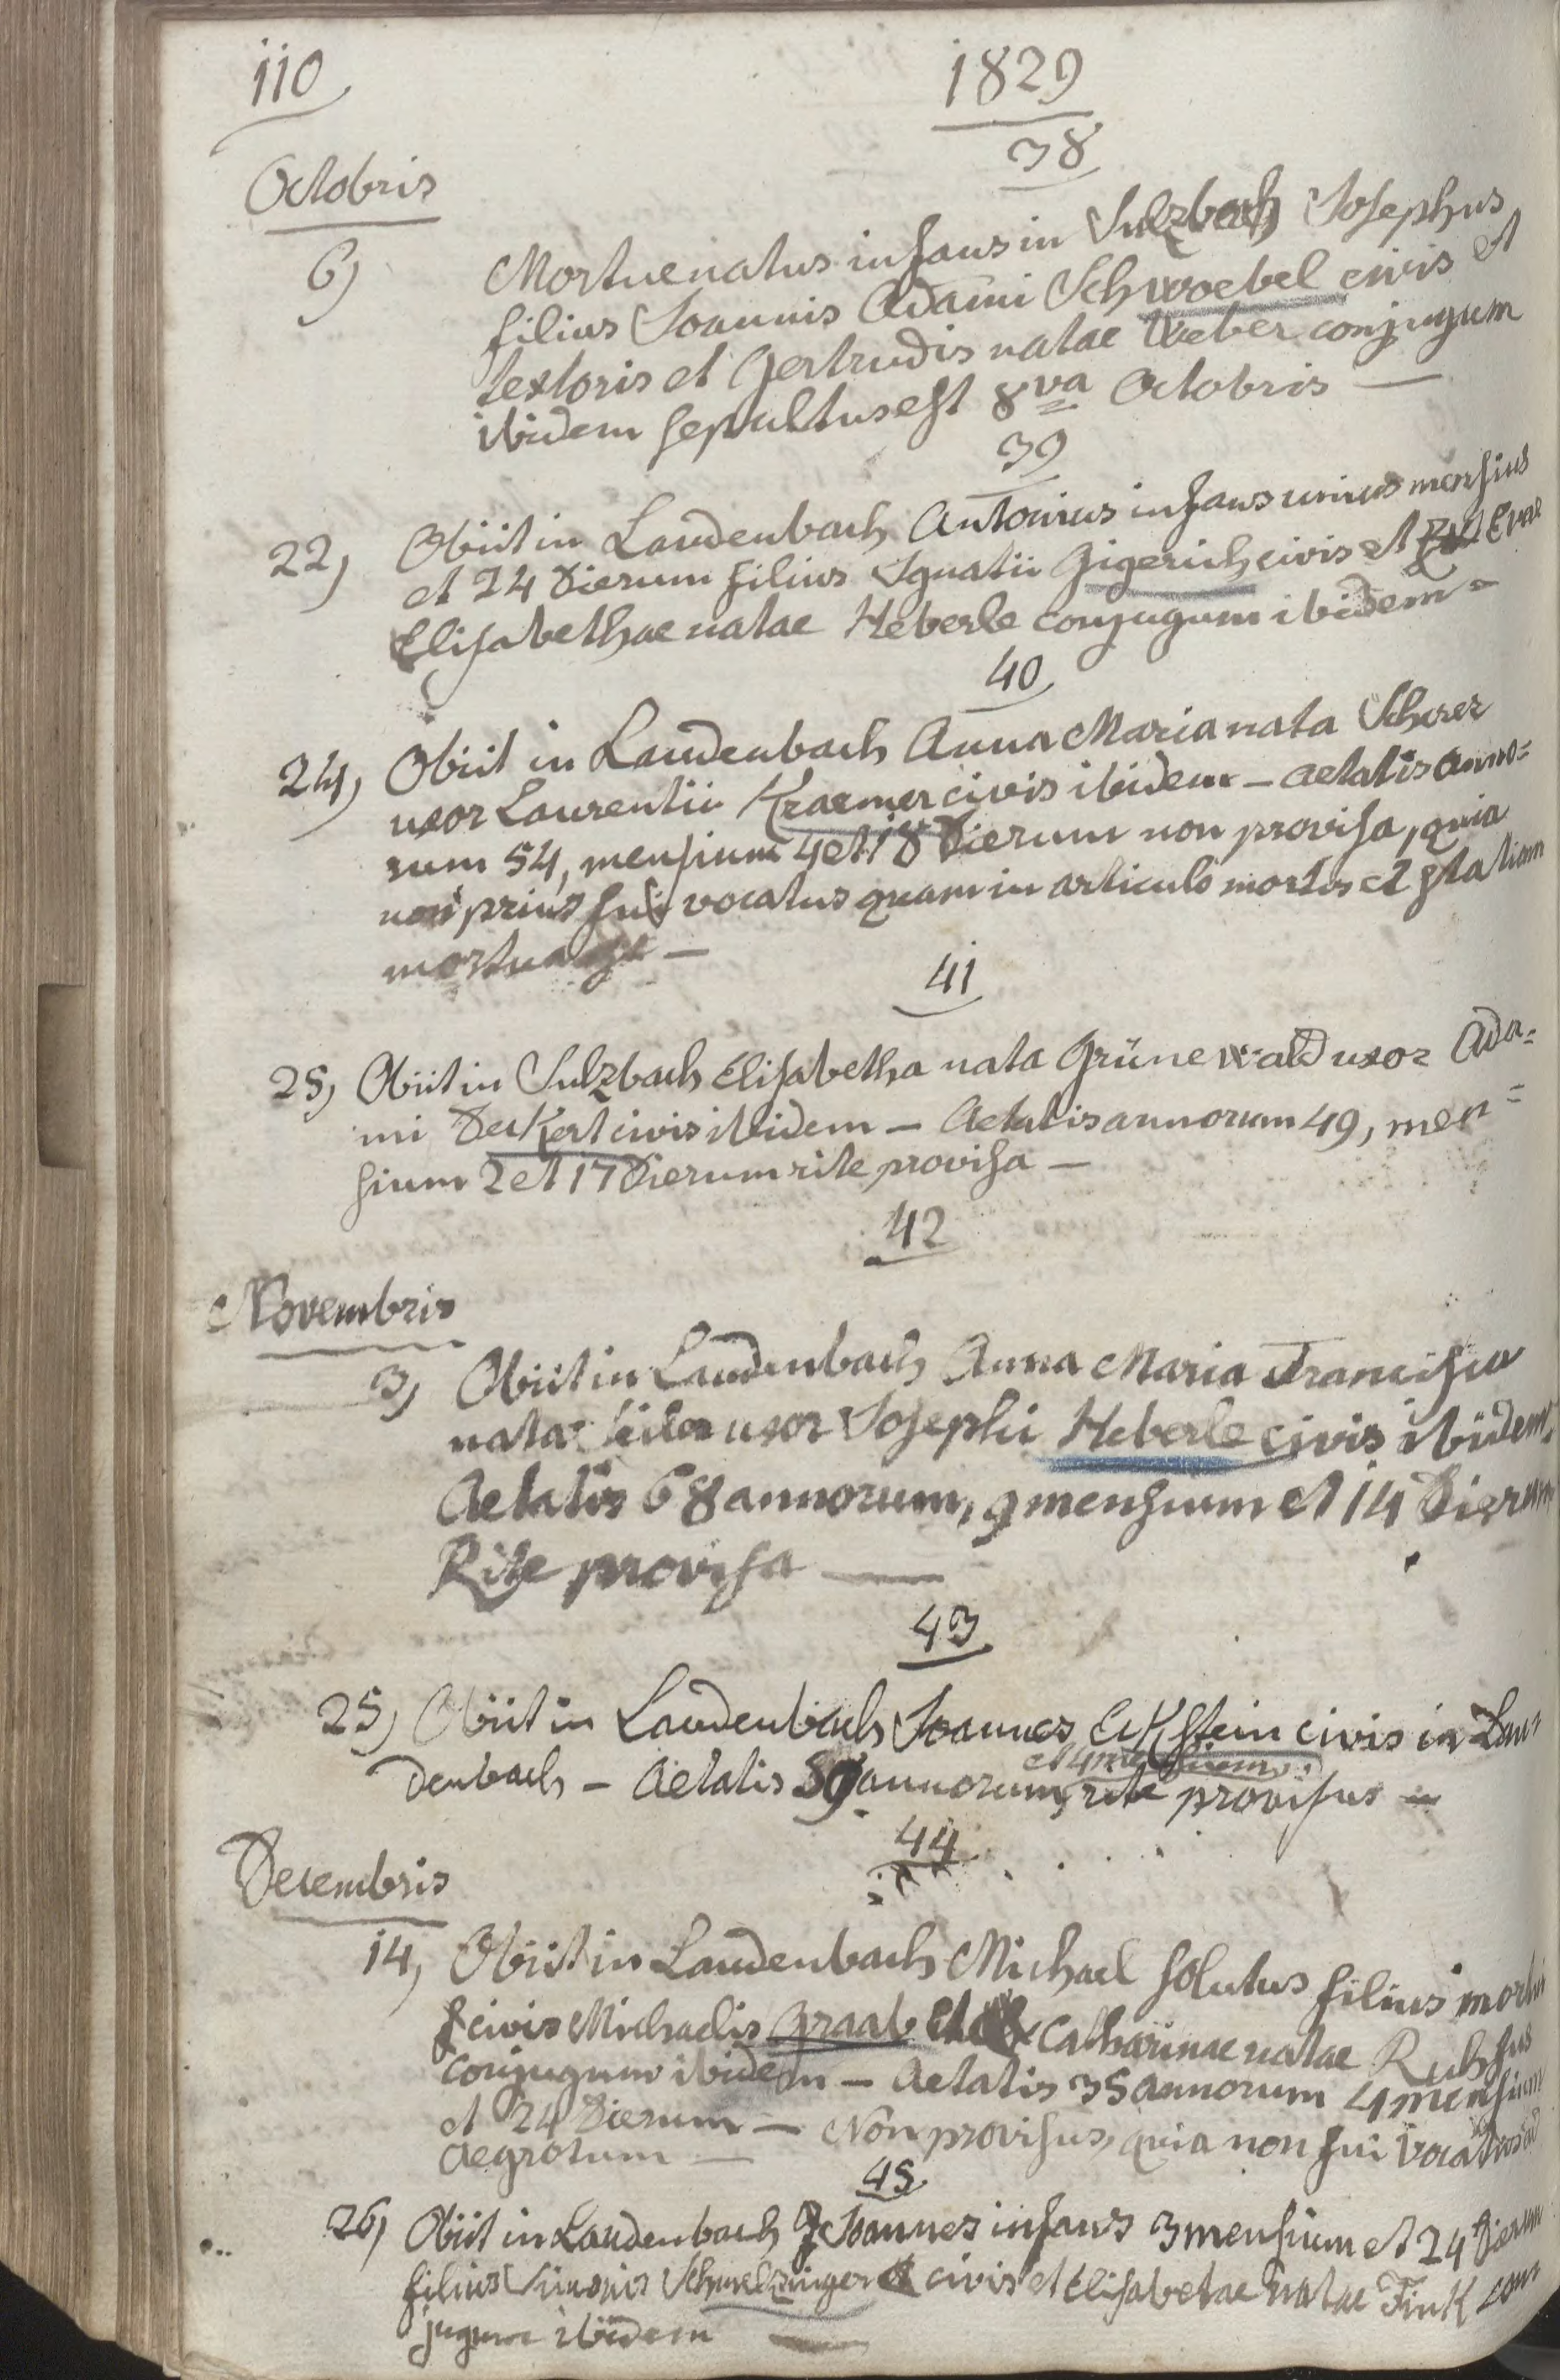 110
1829
38
Octobris
6) Mortue natus infans in Sulzbach Josephus
filius Joannis Adami Schwoebel civis et
textoris et Gertrudis natae Weber conjugum
ibidem sepultus est 8va Octobris —
39
22) Obiit in Laudenbach Antonius infans unius mensius
et 24 dierum filius Ignatii Gigerich civis et Evae
Elisabethae natae Heberle conjugum ibidem =
40
24) Obiit in Laudenbach Anna Maria nata Scherer
uxor Laurentii Kraemer civis ibidem – aetatis anno=
rum 54, mensium 4 et 18 dierum non provisa, quia
non prius fui vocatus quam in articulo mortis et statim
mortua est —
41
25) Obiit in Sulzbach Elisabetha nata Grünewald uxor Ada=
mi Deckert civis ibidem – Aetatis annorum 49, men=
sium 2 et 17 dierum rite provisa —
42
Novembris
3) Obiit in Laudenbach Anna Maria Francisca
nata uxor Josephi Heberle civis ibidem.
Aetatis 68 annorum, 9 mensium et 14 dierum
Rite provisa —
43
25) Obiit in Laudenbach Joannes Eckstein civis in Lau=
et 4 mensium
denbach – Aetatis 59 annorum, rite provisus –
44
Decembris
14) Obiit in Laudenbach Michael solutus filius mortui
civis Michaelis Graab et Catharinae natae
conjugum ibidem – Aetatis 35 annorum 4 mensium
et 24 dierum – Non provisus, quia non fui vocatus ad
aegrotum —
45
26) Obiit in Laudenbach Joannes infans 3 mensium et 24 dierum
filius Simonis Schmelzinger civis et Elisabetae natae Fink con=
jugum ibidem —